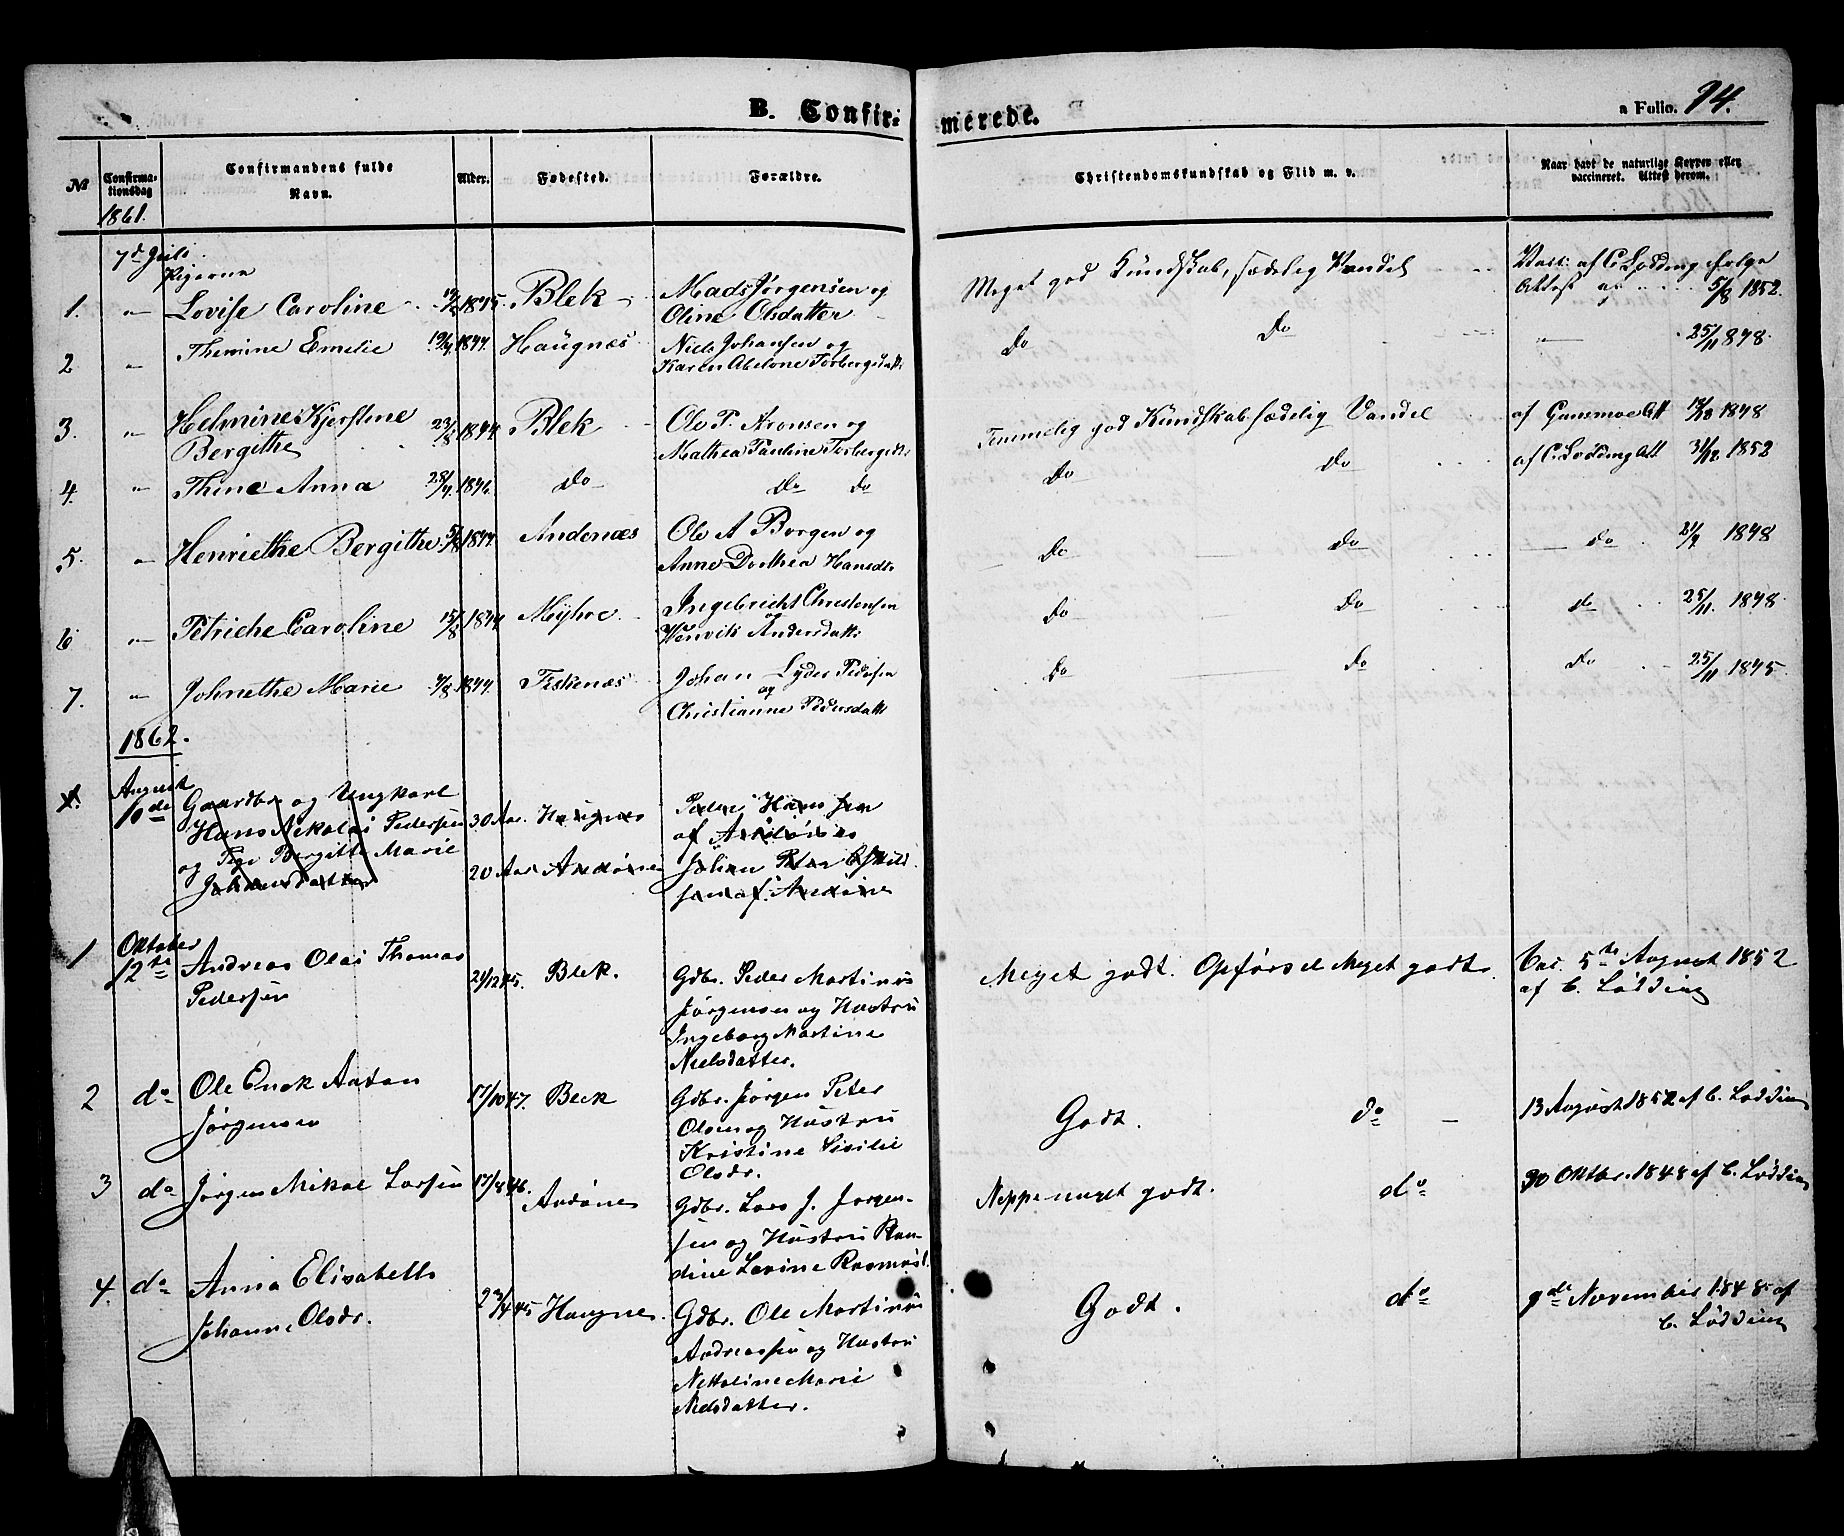 B. Confirmerede.
a Folio. 94.
No
Confirmationsdag
Confirmandens fulde Navn.
Alder.
Fødested.
Forældre.
Christendomskundskab og Flid m. v.
Naar havt de naturlige Kopper eller vaccineret. Attest derom.
1861.
7d Juli
Pigerne
1. " Lovise Caroline 1845. Blek Mads Jørgensen og
Oline Olsdatter
Meget god Kundskab, sædelig Vandel
Vacc. af C. Lødding ifølge
Attest af 5/8 1852.
2 " Themine Emilie 19/4 1844. Haugnæs Niels Johansen og
Karen Abelone Torbergsdatt
Do Do " 25/11 1848.
3. " Helmine Kjerstine 23/8 1844 Blek Ole P. Aronsen og
Bergithe Mathea Pauline Torbergsdt.
Temmelig god Kundskab sædelig Vandel
af Gunsmoe Att 1848
4. " Thine Anna 28/4. 1846. Do Do Do
Do Do af C. Lødding Att 31/12 1852
5. " Henriethe Bergithe 1844. Andenæs Ole A Borgen og
Anne Dorthea Hansdt.
Do Do Do 1848
6 " Petriche Caroline 15/8 1844 Myhre Ingebricht Christensen
og
Andersdatt.
Do Do do 25/11. 1848.
7. " Johnethe Marie 1844. Fiskenæs Johan Lyder Pedersen
og
Christianne Pedersdatt
Do Do Do 25/11 1845.
1862.
1. August
10de Gaardbr og Ungkarl
Hans Nikolai Pedersen 30 Aar. Haugnæs Peder Hansen
af Andønes
og Pige Bergitte Marie
Johansdatter 20 Aar Andønes Johan Peter Eskild
sen af Andønes
1 Oktober
12te Andreas Olai Thomas
Pedersen 21/12 45. Blek. Gdbr. Peder Martinus
Jørgensen og Hustru
Ingeborg Martine
Nielsdatter.
Meget godt. Opførsel Meget godt.
Vac. 5te August 1852
af C. Lødding
2 do Ole Enok Anton
Jørgensen 17/10 47. Blek Gdbr. Jørgen Peter
Olsen og Hustru
Kristine Sisilie
Olsdr.
Godt. do
13 August 1852 af C. Lødding
3 do Jørgen Mikal Larsen 17/8 46. Andønes Gdbr. Lars J. Jørgen-
sen og Hustru Ran-
dine Lovine Rasmusd.
Neppe meget godt. do
30 Oktbr. 1848 af C. Lødding
4. do Anna Elisabeth
Johanne Olsdr. 23/4 45 Haugnes. Gdbr. Ole Martinus
Andreassen og Hustru
Nettoline Marie
Nielsdatter.
Godt. do
9de November 1848 af
C. Lødding